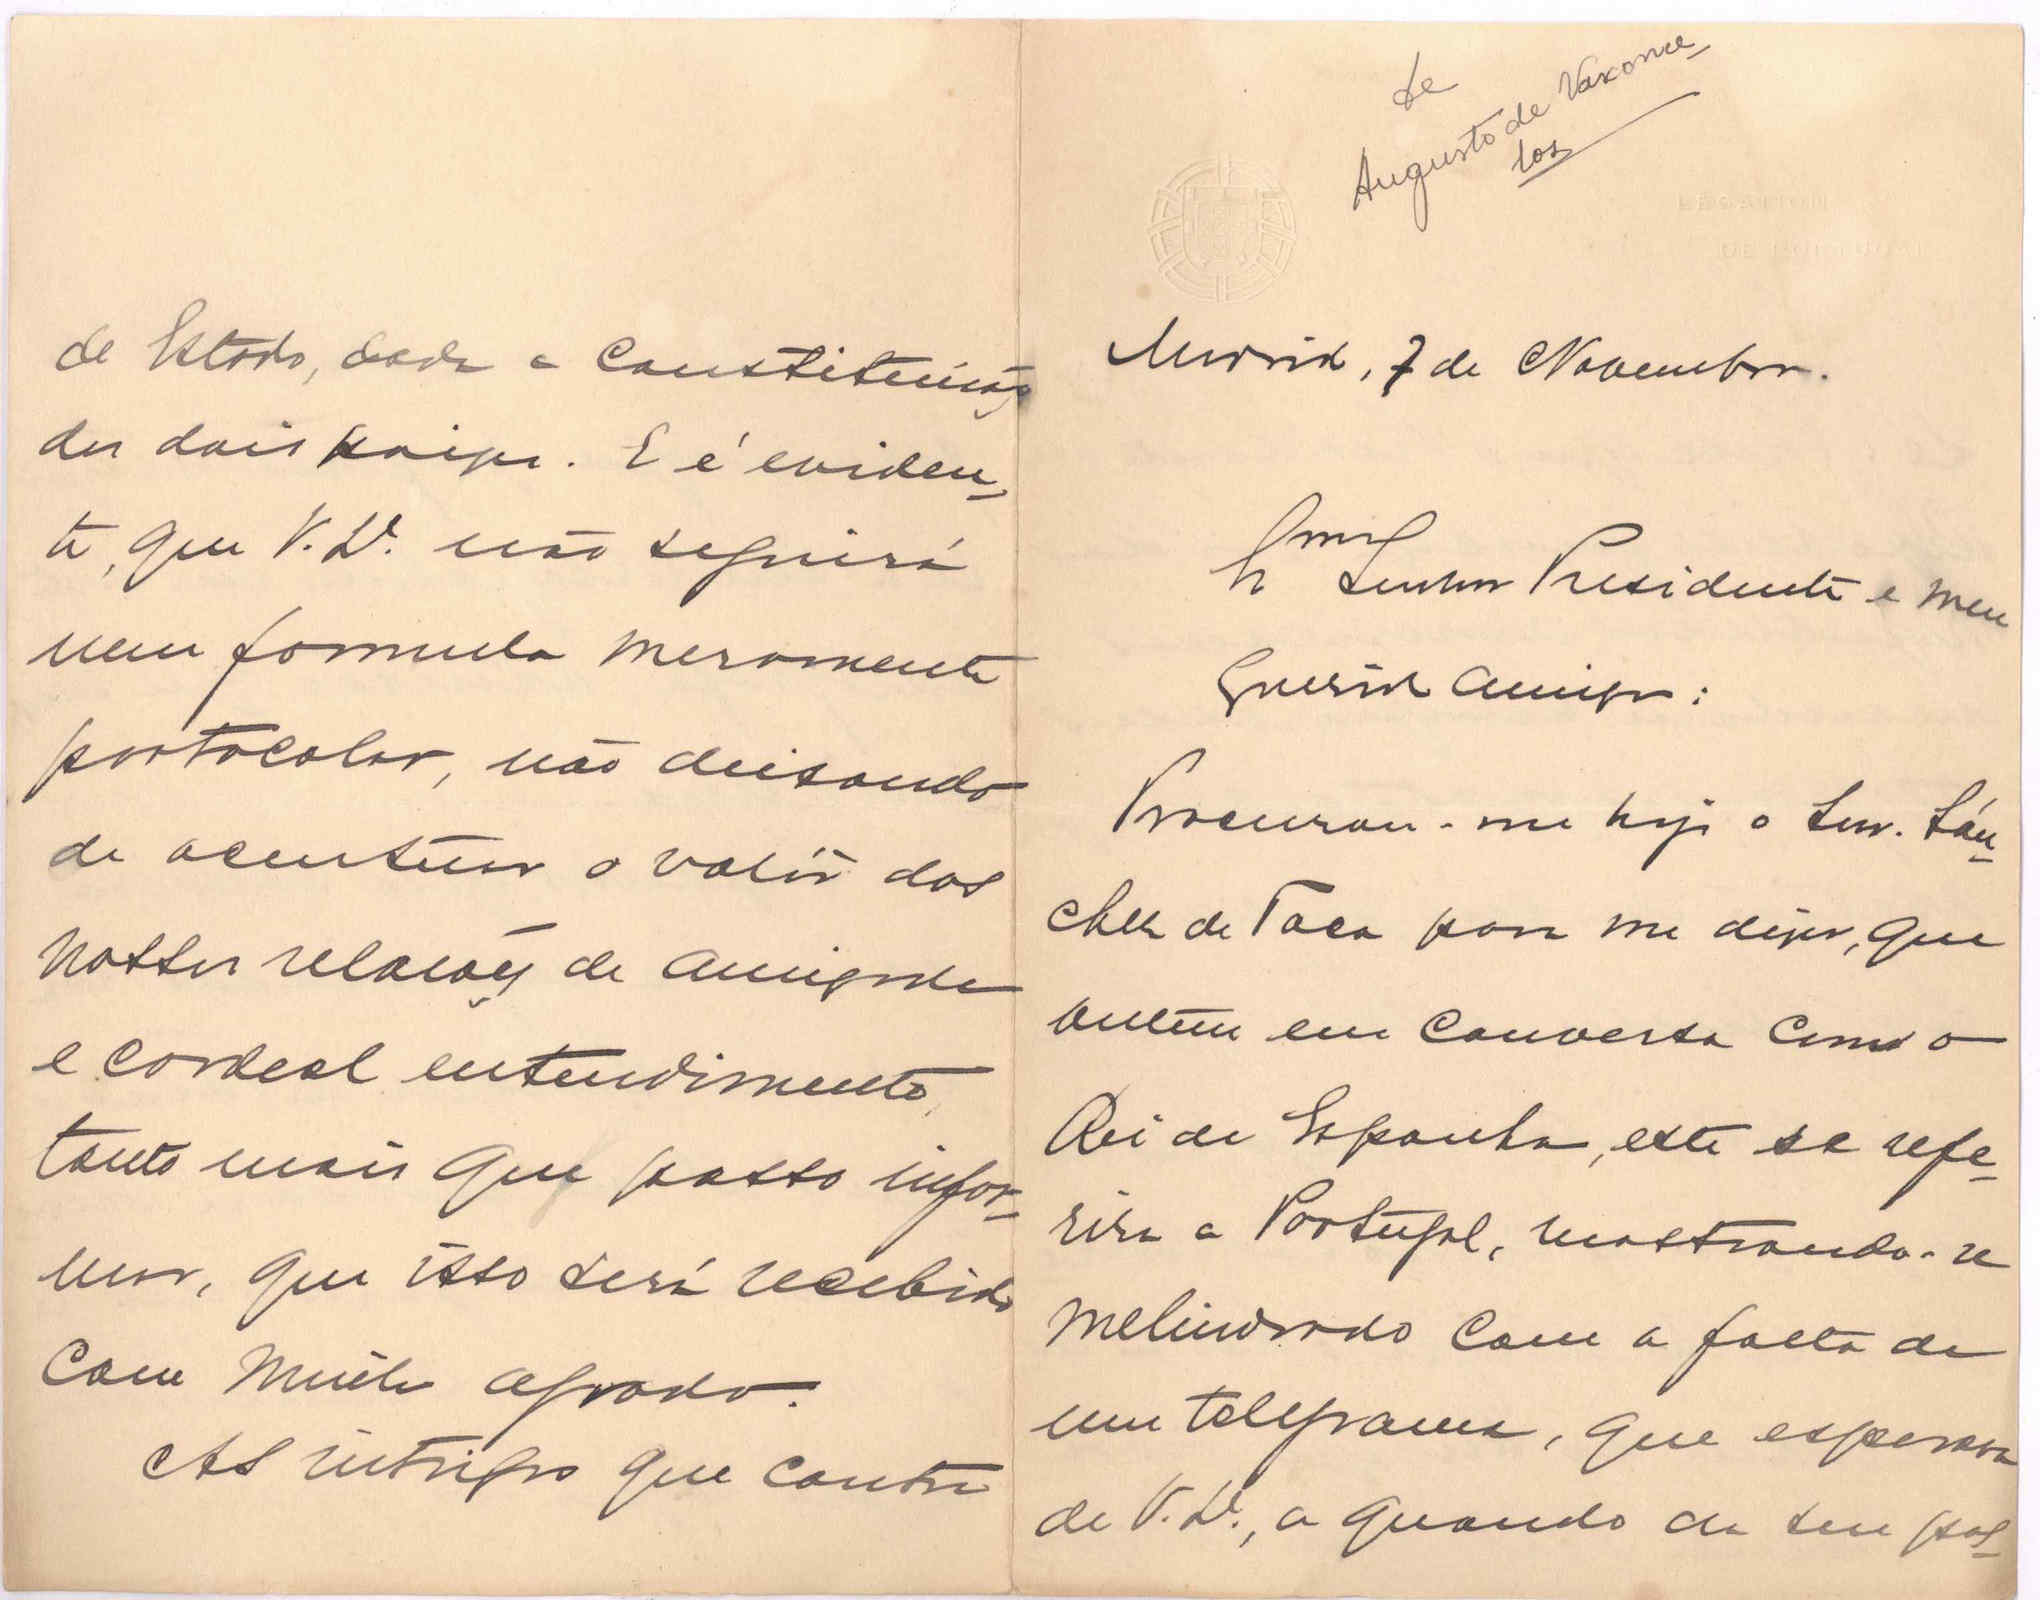 de
Augusto de Vasconce-
los
LEGATION
DE PORTUGAL
Madrid, 7 de Novembro.
Exmo Senhor Presidente e meu
Querido Amigo:
Procurou-me hoje o Snr. Sán-
chez de Toca para me dizer, que
ontem em conversa com o
Rei de Espanha, este se refe-
rira a Portugal, mostrando-se
melindrado com a falta de
um telegrama, que esperava
de V. Exª., a quando da sua pos-
de Estado, dada a Constituição
dos dois paizes. E é eviden-
te, que V. Exª. não seguirá
uma formula meramente
protocolar, não deixando
de acentuar o valôr das
nossas relações de amizade
e cordeal entendimento,
tanto mais que posso infor-
mar, que isso será recebido
com muito agrado.
As intrigas que contra